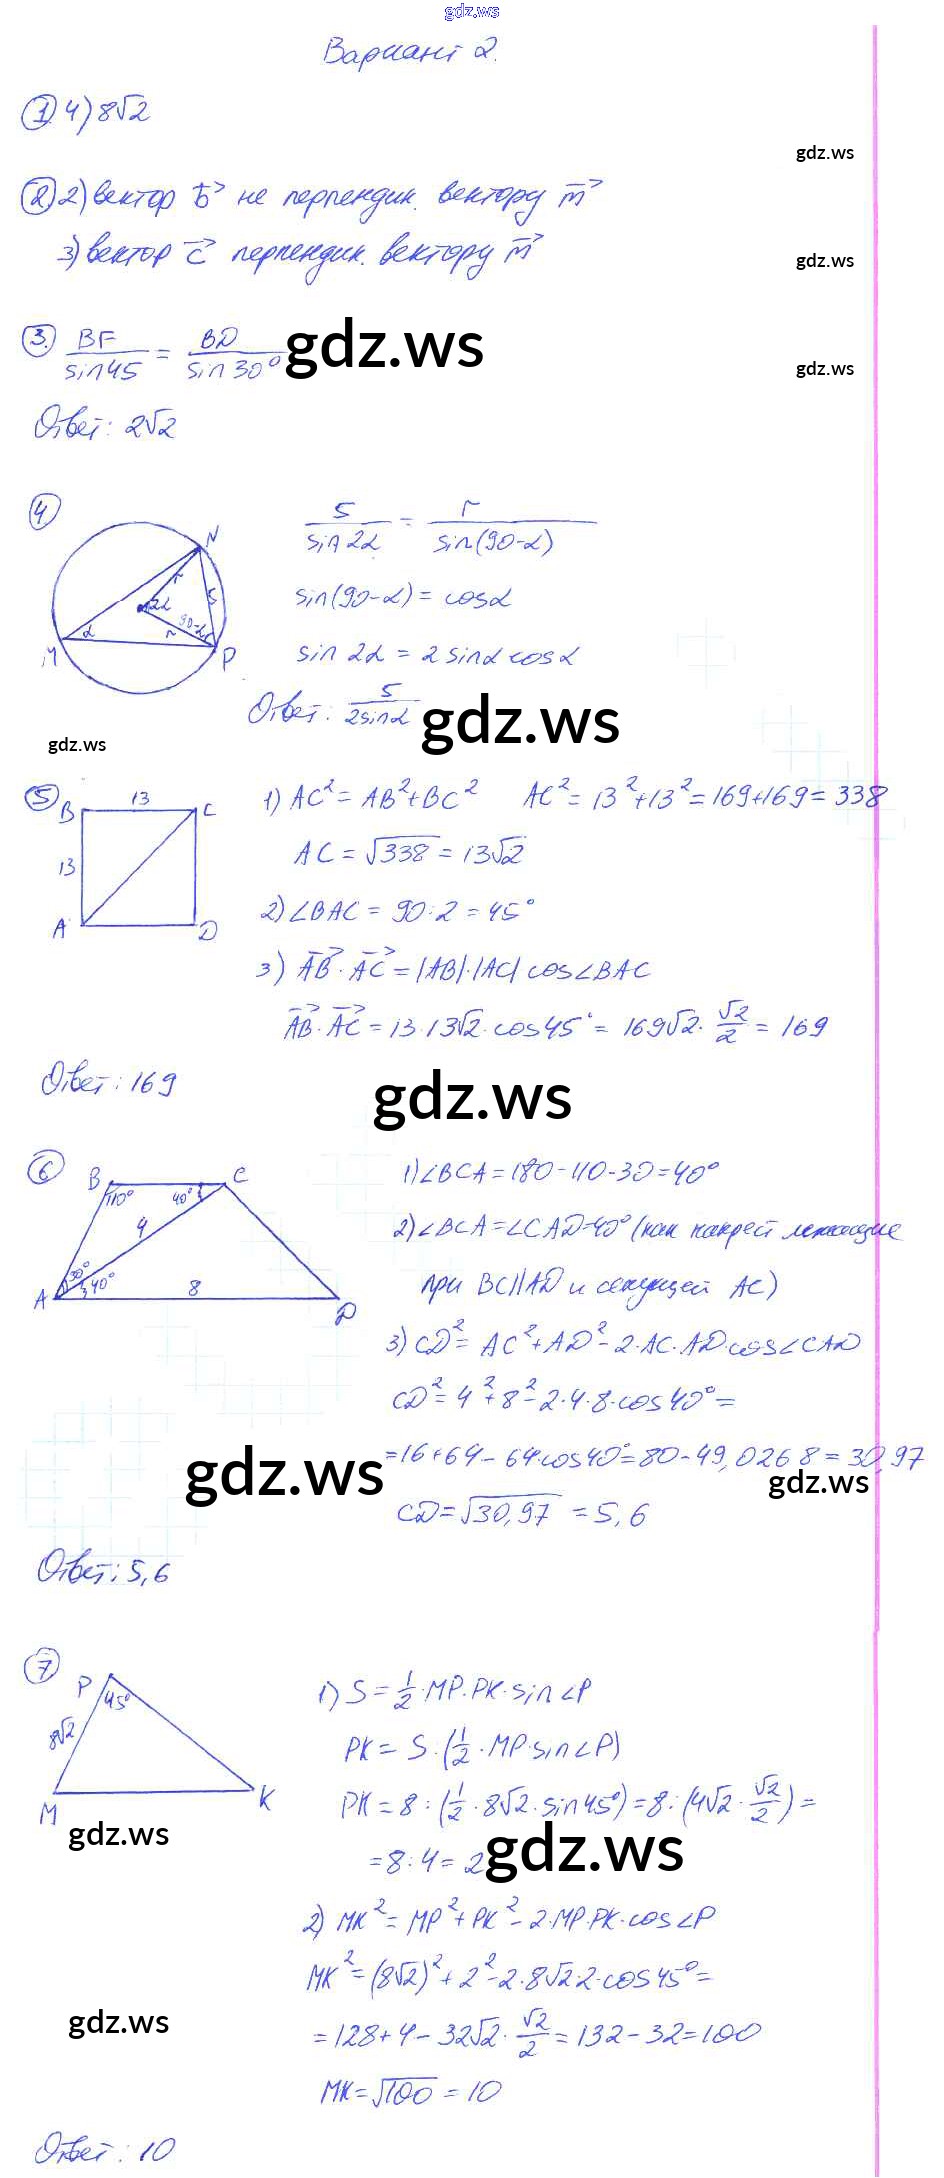 gdz.ws
Вариант 2.
1. 4) 8√2
gdz.ws
2. 2) вектор b⃗ не перпендик. вектору m⃗
3) вектор c⃗ перпендик. вектору m⃗
gdz.ws
3. BF/sin45 = BD/sin30° gdz.ws
gdz.ws
Ответ: 2√2
4
N M P r r 5 α 2α 90-α
5/sin2α = r/sin(90-α)
sin(90-α) = cosα
sin2α = 2sinα cosα
Ответ: 5/2sinα gdz.ws
gdz.ws
5 B 13 C 13 A D
1) AC² = AB² + BC² AC² = 13² + 13² = 169 + 169 = 338
AC = √338 = 13√2
2) ∠BAC = 90 : 2 = 45°
3) AB⃗ · AC⃗ = |AB| · |AC| cos∠BAC
AB⃗ · AC⃗ = 13 · 13√2 · cos45° = 169√2 · √2/2 = 169
Ответ: 169
gdz.ws
6 B C 110° 40° 4 30° 40° A 8 D
1) ∠BCA = 180 - 110 - 30 = 40°
2) ∠BCA = ∠CAD = 40° (как накрест лежащие
при BC||AD и секущей AC)
3) CD² = AC² + AD² - 2·AC·AD·cos∠CAD
CD² = 4² + 8² - 2·4·8·cos40° =
= 16 + 64 - 64·cos40° = 80 - 49,0268 = 30,97
gdz.ws gdz.ws
CD = √30,97 = 5,6
Ответ: 5,6
7 P 45° 8√2 M K
1) S = 1/2 · MP · PK · sin∠P
PK = S : (1/2 · MP · sin∠P)
PK = 8 : (1/2 · 8√2 · sin45°) = 8 : (4√2 · √2/2) =
gdz.ws
= 8 : 4 = 2 gdz.ws
2) MK² = MP² + PK² - 2·MP·PK·cos∠P
MK² = (8√2)² + 2² - 2·8√2·2·cos45° =
gdz.ws
= 128 + 4 - 32√2 · √2/2 = 132 - 32 = 100
MK = √100 = 10
Ответ: 10